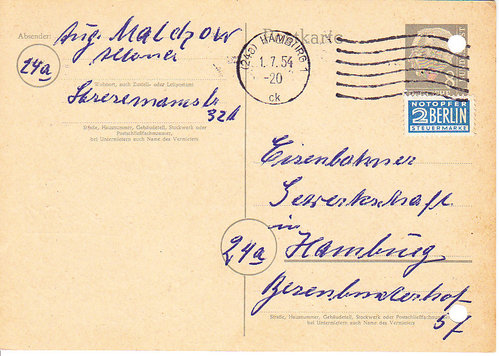 Absender:
Aug. Malchow
Altona
24a
Wohnort, auch Zustell- oder Leitpostamt
Stresemannstr
32A
Straße, Hausnummer, Gebäudeteil, Stockwerk oder
Postschließfachnummer,
bei Untermietern auch Name des Vermieters
Postkarte
(24a) HAMBURG 1
1.7.54
-20
ck
NOTOPFER
2 BERLIN
STEUERMARKE
Eisenbahner
Gewerkschaft
in
24a Hamburg
Besenbinderhof
57
Straße, Hausnummer, Gebäudeteil, Stockwerk oder Postschließfachnummer
bei Untermietern auch Name des Vermieters